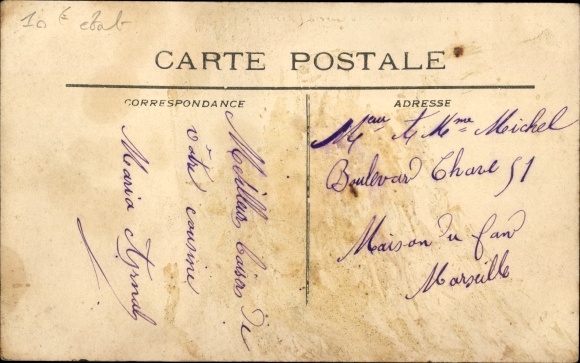 10 e étab
CARTE POSTALE
CORRESPONDANCE
ADRESSE
Meilleurs baisers de
votre cousine
Maria
Mr et Mme Michel
Boulevard Chave 51
Maison du fond
Marseille